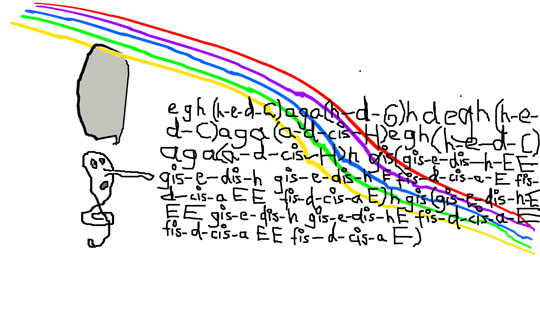 e g h (h-e-d-C) a g a (h-d-G) h d e g h (h-e-
d-C) a g a (a-d-cis-H) e g h (h-e-d-C)
a g a (a-d-cis-H) h gis (gis-e-dis-h-E E
gis-e-dis-h gis-e-dis-h E fis-d-cis-a-E fis-
d-cis-a E E fis-d-cis-a E) h gis (gis-e-dis-h-E
E E gis-e-dis-h gis-e-dis-h E fis-d-cis-a-E
fis-d-cis-a E E fis-d-cis-a E)